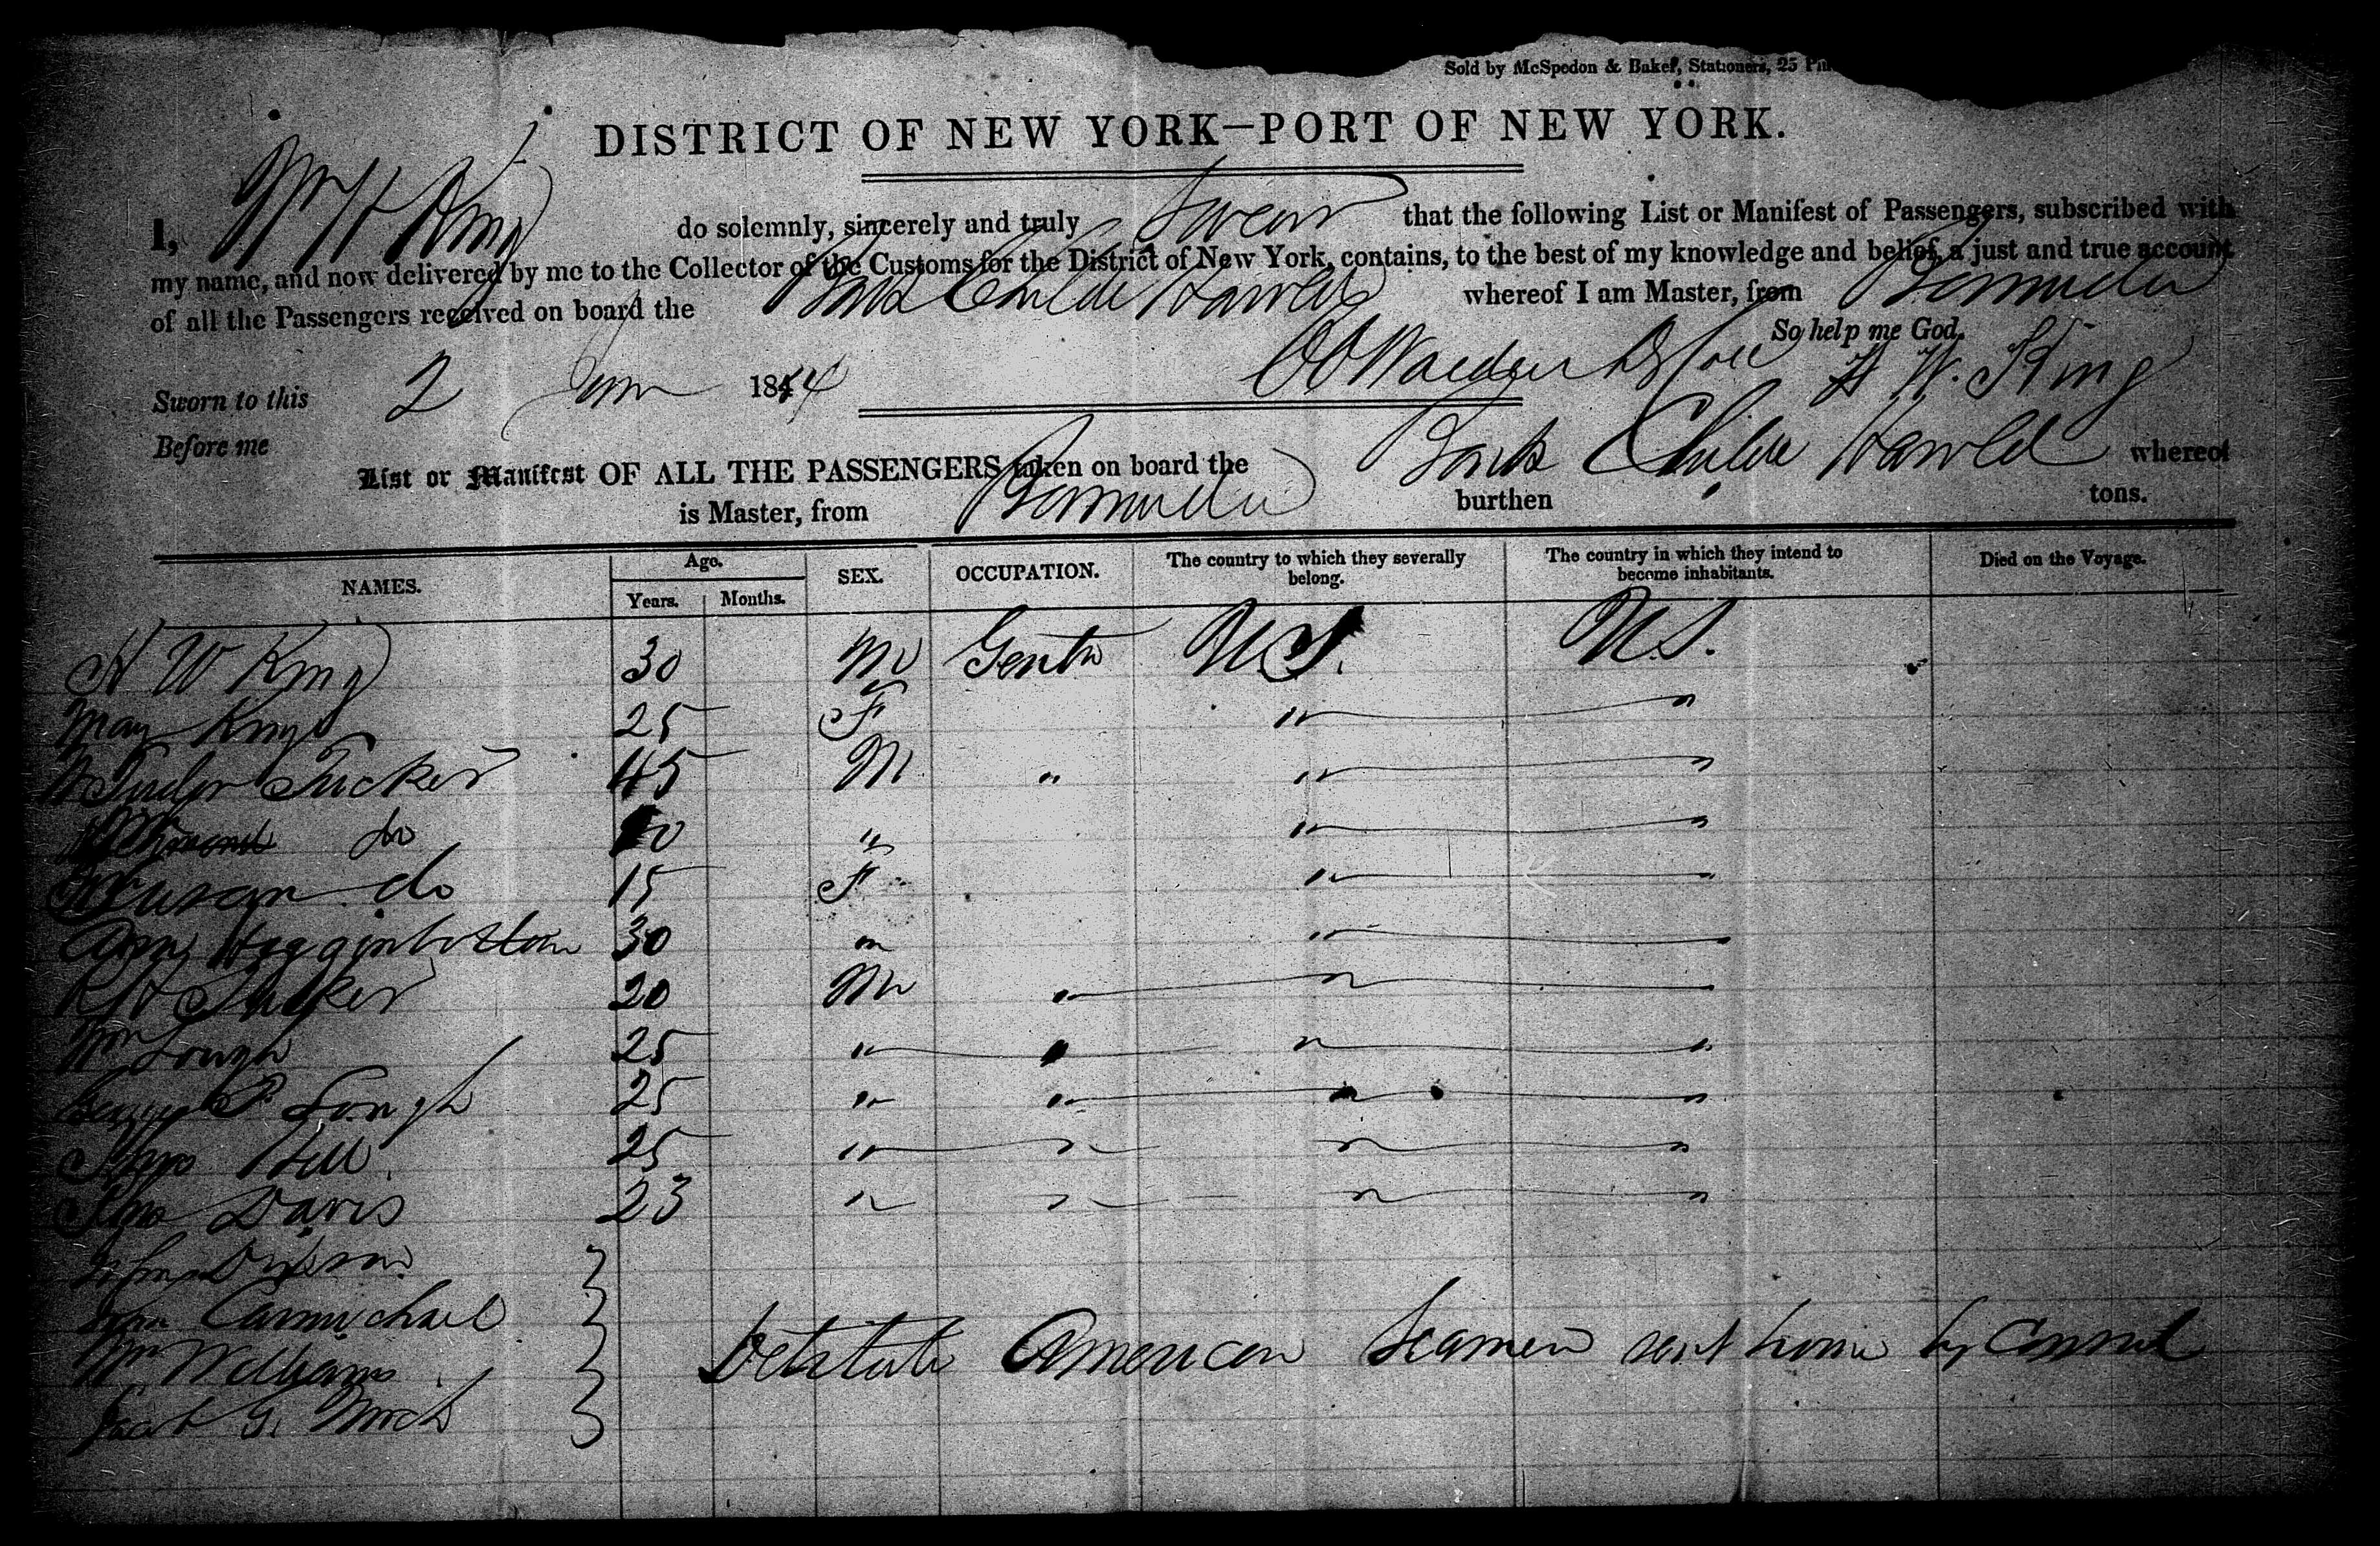 Sold by McSpedon & Baker, Stationers, 25
DISTRICT OF NEW YORK—PORT OF NEW YORK.
I, Wm H King do solemnly, sincerely and truly Swear that the following List or Manifest of Passengers, subscribed with
my name, and now delivered by me to the Collector of the Customs for the District of New York, contains, to the best of my knowledge and belief, a just and true account
of all the Passengers received on board the Bark Childe Harold whereof I am Master, from Bermuda
So help me God.
Sworn to this 2 1844 H W. King
Before me
List or Manifest OF ALL THE PASSENGERS taken on board the Bark Childe Harold whereof
is Master, from Bermuda burthen tons.
NAMES. Age. Years. Months. SEX. OCCUPATION. The country to which they severally belong. The country in which they intend to become inhabitants. Died on the Voyage.
H W King 30 M Gentn U.S. U.S.
May King 25 F " "
Tudor Tucker 45 M " " "
do " " "
Susan do 15 F " "
Ann Higginbottom 30 " " "
R H Tucker 20 M " " "
Wm Lough 25 " " " "
P Lough 25 " " " "
Thos Hill 25 " " " "
Davis 23 " " " "
Carmichael
Wm Williams
Jacob G.
Detstute American Seamen sent home by Consul